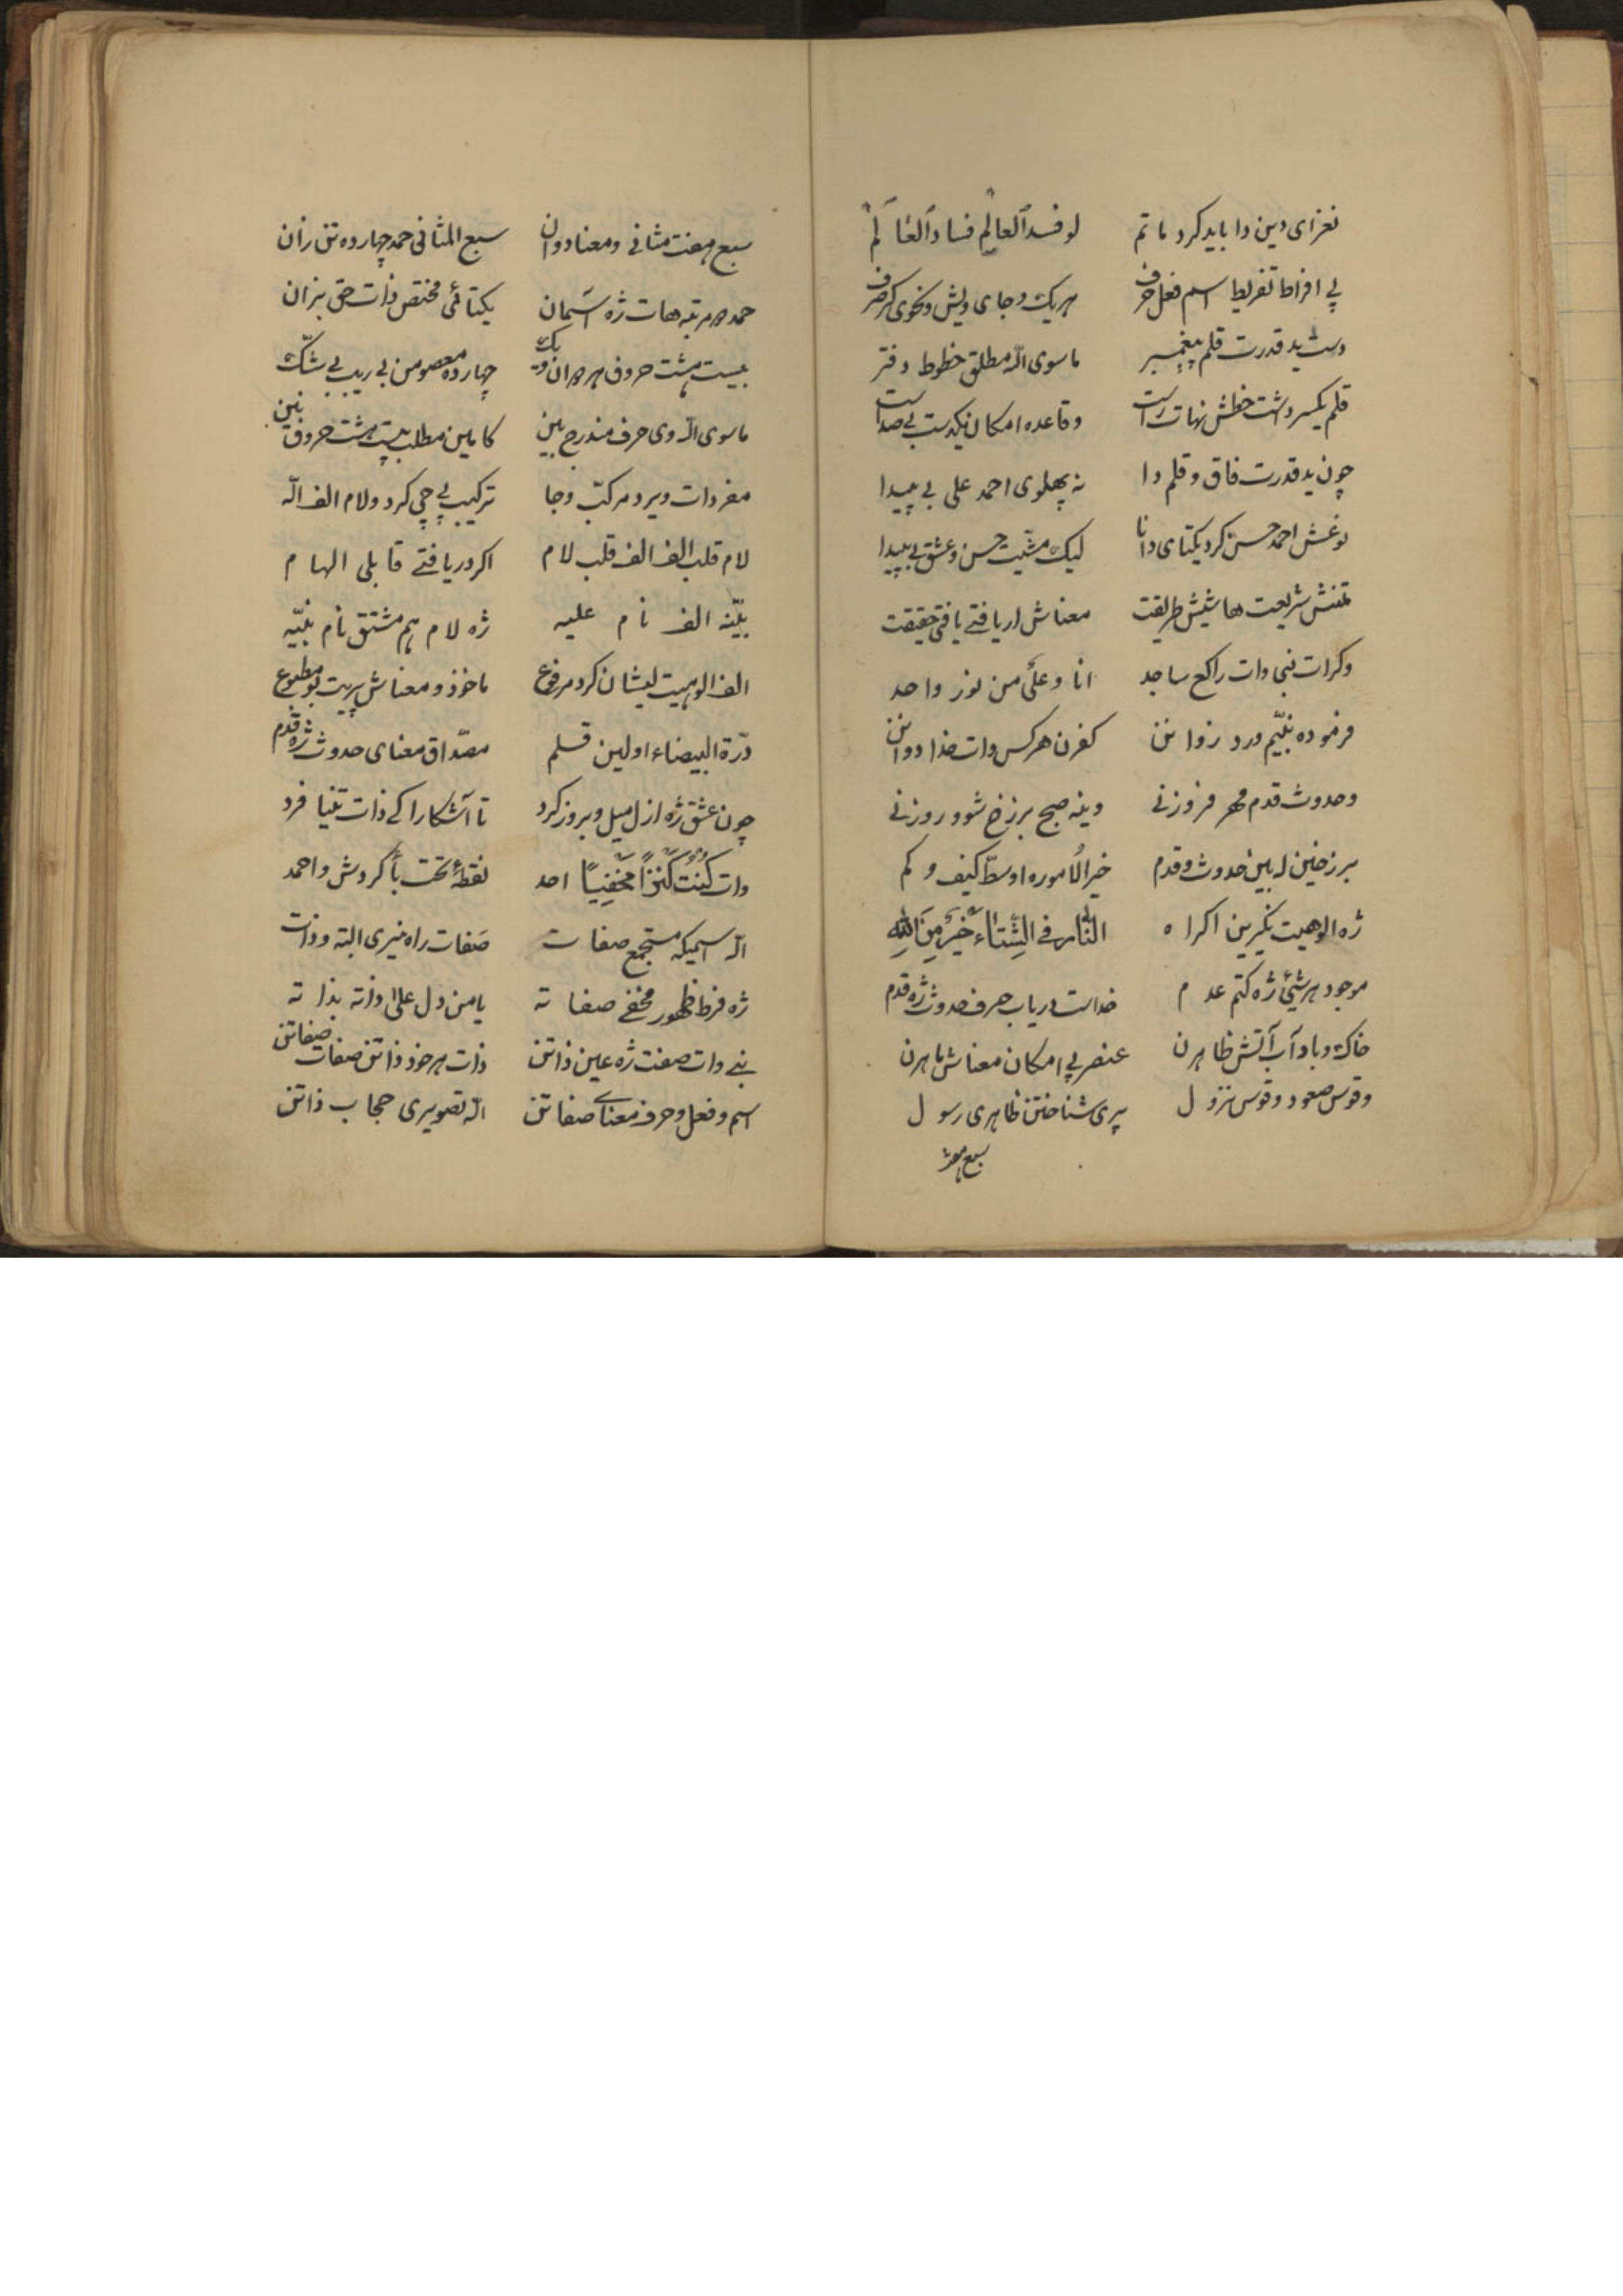 نعزای دین دا باید کرد ماتم لو فسد العالِم فساد العالَم
بی افراط تفریط اسم فعل حرف هریک و جای ویش و نحوی کر صرف
دست ید قدرت قلم پیغمبر ماسوی اللّه مطلق خطوط دفتر
قلم یکسر داشت خطش نهات راست وقاعده امکان نیکدست بی صداست
چون ید قدرت فاق و قلم دا نه پهلوی احمد علی بی پیدا
نوغش احمد حسن کرد یکتای دانا لیک مشیت حسن و عشق بی پیدا
متنش شریعت هاشیش طریقت معناش ار یافتی یافتی حقیقت
وکرات نبی وات راکع ساجد انا و علی من نور واحد
فرموده نبیّم ورد زوانن کفرن هرکس وات خدا دوانن
وحدوث قدم مهر فروزنی وینه صبح برزخ شو و روزنی
برزخین له بین حدوث و قدم خیر الامور اوسط کیف و کم
ژه الوهیت نگیرین اکراه النّار فی الشّتاء خیر من اللّه
موجود هر شیئ ژه کتم عدم خداست دریاب حرف حدوث ژه قدم
خاک و باد آب آتش ظاهرن عنصر بی امکان معناش ماهرن
وقوس صعود وقوس نزول پری شناختن ظاهری رسول
سبع هفت
سبع هفت مثانی و معنا دوان سبع المثانی حمد چهارده تن زان
حمد دو مرتبه هات ژه آسمان یکتائی مختص ذات حق بزان
بیست هشت حروف هر دوان و یک چهارده معصومن بی ریب بی شک
ماسوی اللّه وی حرف مندرج بین کامین مطلب بیست هشت حروف نین
مفردات ویرد مرکّب وجا ترکیب بی چی کرد و لام الف اللّه
لام قلب الف الف قلب لام اکر دریافتی قابلی الهام
بیّنه الف نام علیه ژه لام هم مشتق نام نبیّه
الف الوهیت لیشان کرد مرفوع ماخوذ و معناش پریت بو مطبوع
درّة البیضاء اولین قلم مصداق معنای حدوث ژه قدم
چون عشق ژه ازل میل و بروز کرد تا آشکارا کی ذات تنیا فرد
وات کُنت کنزاً مخفیاً احد نقطهٔ تحت باٰ کردش و احمد
اللّه اسمیکه مستجمع صفات صفات راه نیری البته و ذات
ژه فرط ظهور مخفی صفاته یا من دل علیٰ ذاته بذاته
بنی وات صفت ژه عین ذاتن ذات هر خود ذاتن صفات صفاتن
اسم و فعل و حرف معنای صفاتن اللّه تصویری حجاب ذاتن